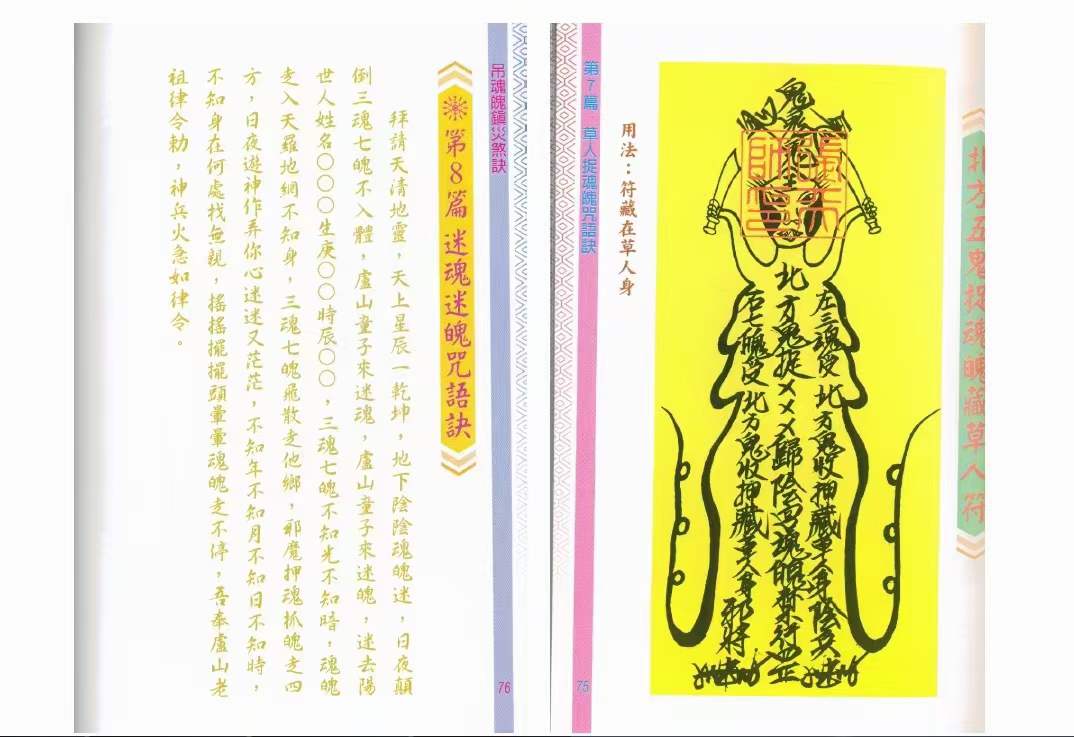 北方五鬼捉魂魄藏草人符
鬼
張天
師
北
左三魂受北方鬼收押藏草人身陰兵
北方鬼捉㐅㐅㐅歸陰
右七魄受北方鬼收押藏草人身邪將
用法：符藏在草人身
第7篇 草人捉魂魄咒語訣
75
吊魂魄鎮災煞訣
76
第8篇 迷魂迷魄咒語訣
拜請天清地靈，天上星辰一乾坤，地下陰陰魂魄迷，日夜顛
倒三魂七魄不入體，盧山童子來迷魂，盧山童子來迷魄，迷去陽
世人姓名○○○生庚○○時辰○○，三魂七魄不知光不知暗，魂魄
走入天羅地網不知身，三魂七魄飛散走他鄉，邪魔押魂抓魄走四
方，日夜遊神作弄你心迷迷又茫茫，不知年不知月不知日不知時，
不知身在何處找無親，搖搖擺擺頭暈暈魂魄走不停，吾奉盧山老
祖律令勅，神兵火急如律令。